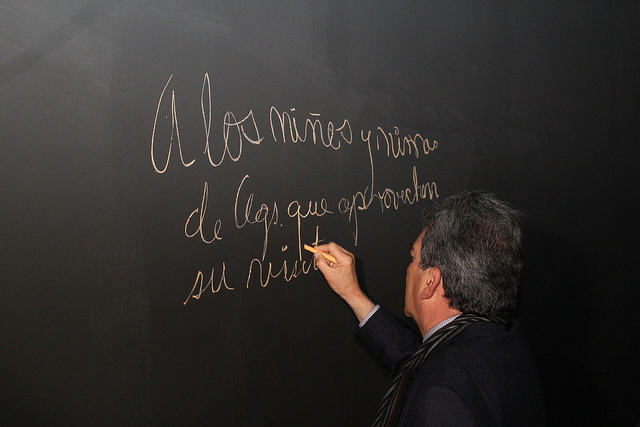 A los niños y niñas
de Ags. que aprovechen
su visit